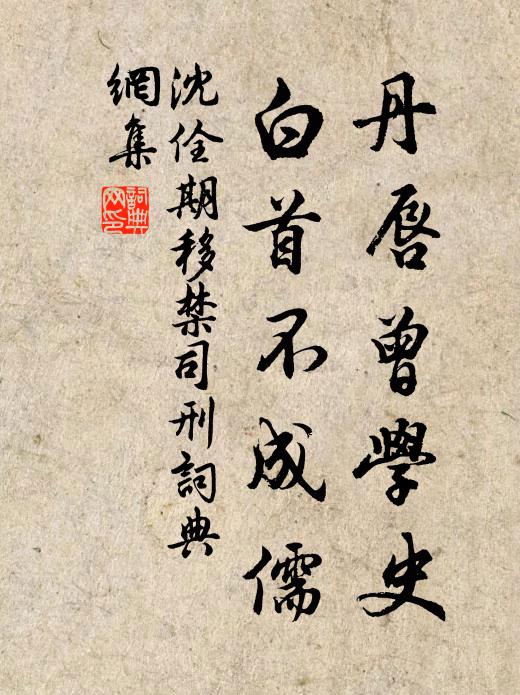 丹唇曾學史
白首不成儒
沈佺期移禁司刑詞典
網集
詞典网印